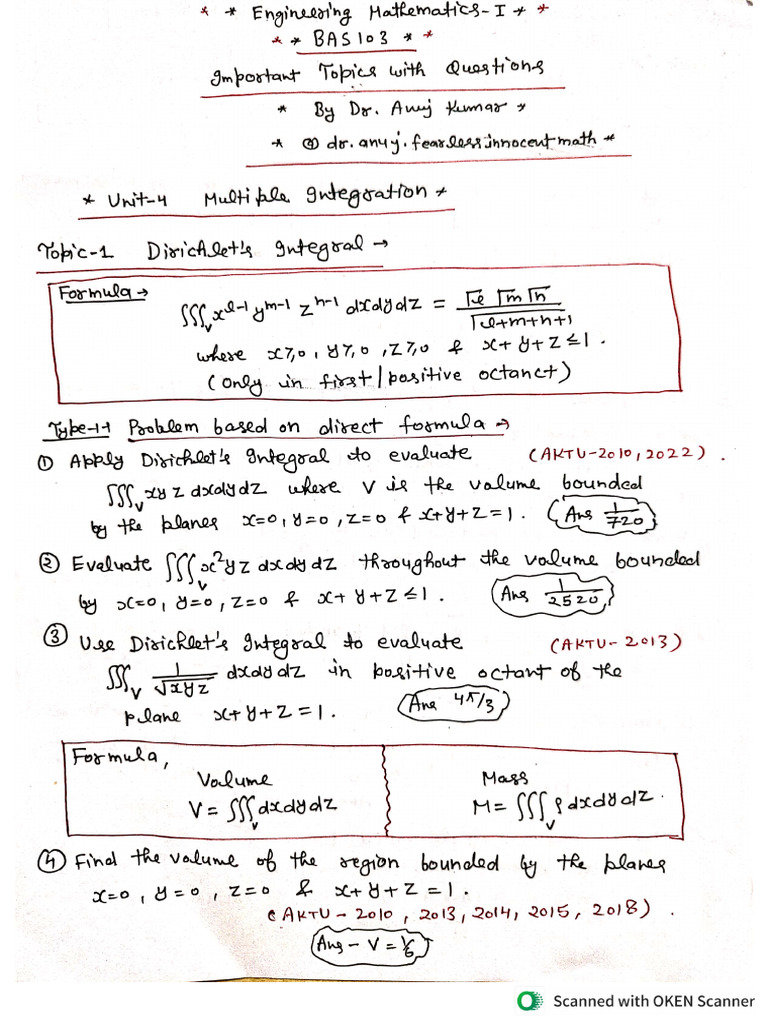 * * Engineering Mathematics-I * *
* * BAS103 * *
Important Topics with Questions
* By Dr. Anuj Kumar *
* @ dr.anuj.fearlessinnocentmath *
* Unit-4 Multiple Integration *
Topic-1 Dirichlet's Integral →
Formula →
∭_V x^{l-1} y^{m-1} z^{n-1} dxdydz = Γl Γm Γn / Γl+m+n+1
where x≥0, y≥0, z≥0 & x+y+z≤1.
(only in first/positive octanct)
Type-1→ Problem based on direct formula →
① Apply Dirichlet's Integral to evaluate (AKTU-2010,2022).
∭_V xyz dxdydz where V is the volume bounded
by the planes x=0, y=0, z=0 & x+y+z=1. (Ans 1/720)
② Evaluate ∭_V x²yz dxdydz throughout the volume bounded
by x=0, y=0, z=0 & x+y+z≤1. (Ans 1/2520)
③ Use Dirichlet's Integral to evaluate (AKTU-2013)
∭_V 1/√xyz dxdydz in positive octant of the
plane x+y+z=1. (Ans 4π/3)
Formula,
Volume
V = ∭_V dxdydz
Mass
M = ∭_V ρ dxdydz.
④ Find the volume of the region bounded by the planes
x=0, y=0, z=0 & x+y+z=1.
(AKTU-2010, 2013, 2014, 2015, 2018).
Ans - V = 1/6
Scanned with OKEN Scanner